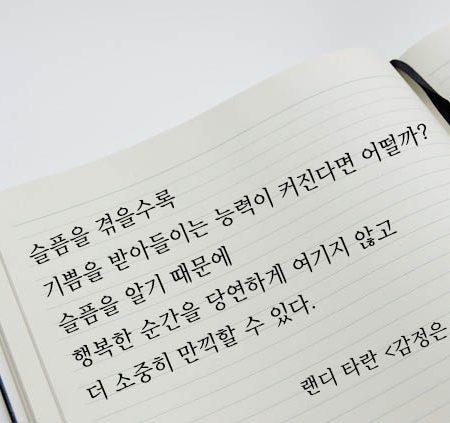 슬픔을 겪을수록
기쁨을 받아들이는 능력이 커진다면 어떨까?
슬픔을 알기 때문에
행복한 순간을 당연하게 여기지 않고
더 소중히 만끽할 수 있다.
랜디 타란 <감정은